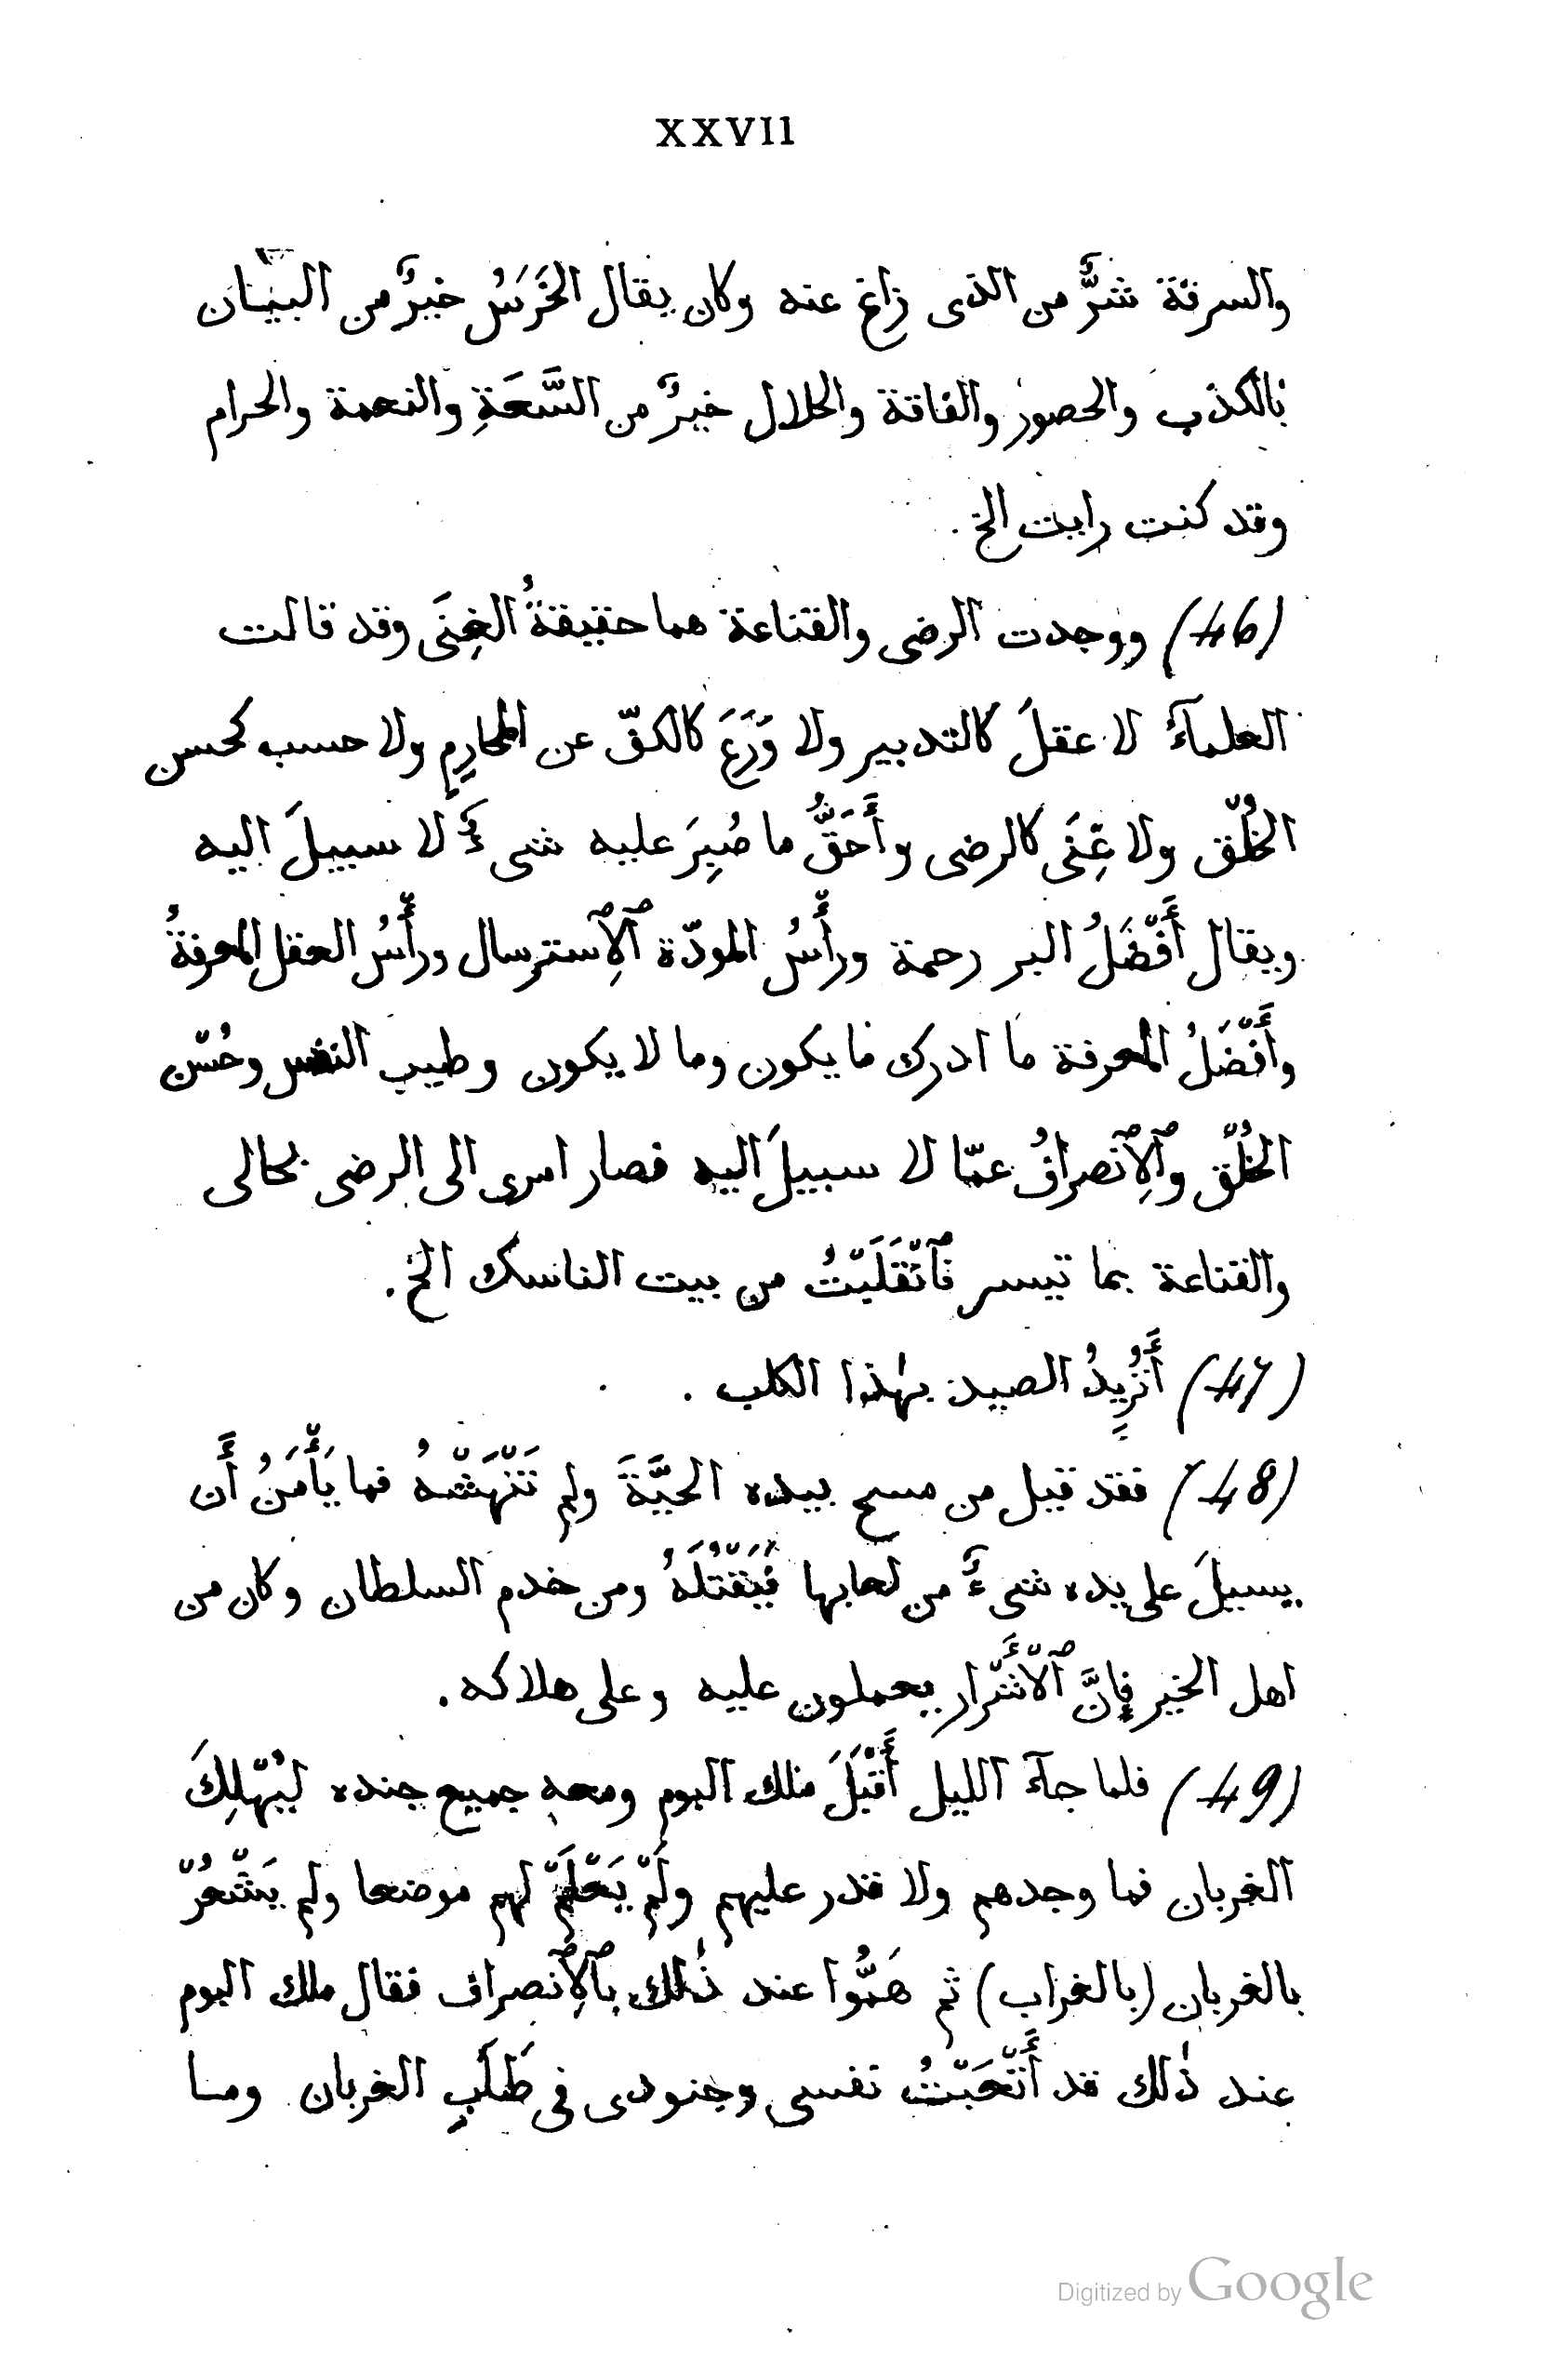 XXVII
والسرقة شرٌّ من الذى زاغ عنه وكان يقال الخَرَسُ خيرٌ من البيان
بالكذب والحصور والفاقة والحلال خيرٌ من السَّعَةِ والنعمة والحرام
وقد كنت رايت الخ .
(46) ووجدت الرضى والقناعة هما حقيقةُ الغِنَى وقد قالت
العلمآءُ لا عقلَ كالتدبير ولا وَرَعَ كالكفّ عن المحارِمِ ولا حسب كحسن
الخُلْق ولا غِنَى كالرضى وأَحَقُّ ما صُبِرَ عليه شىءٌ لا سبيلَ اليه
ويقال أَفْضَلُ البر رحمة ورأْسُ المودّة ٱلِٱسترسال ورأْسُ العقل المعرفةُ
وأَفْضَلُ المعرفة ما ادرك ما يكون وما لا يكون وطيب النفس وحُسْن
الخُلْق وٱلِٱنْصرافُ عمّا لا سبيلَ اليه فصار امرى الى الرضى بحالى
والقناعة بما تيسر فٱنْقَلَبْتُ من بيت الناسك الخ .
(47) أَتُرِيدُ الصيد بهٰذا الكلب .
(48) فقد قيل من مسح بيده الحيَّةَ ولم تَنْهَشْهُ فما يَأْمَنُ أَن
يسيلَ على يده شىءٌ من لعابها فَيَقْتُلَهُ ومن خدم السلطان وكان من
اهل الخير فإنَّ ٱلْأَشْرار يعملون عليه وعلى هلاكه .
(49) فلما جآء الليل أَقْبَلَ ملك البوم ومعه جميع جنده لِيُهْلِكَ
الغربان فما وجدهم ولا قدر عليهم ولَمْ يَعْلَمْ لهم موضعا ولم يَشْعُرْ
بالغربان (بالغراب) ثم هَمُّوا عند ذٰلك بٱلِٱنصراف فقال ملك البوم
عند ذٰلك قد أَتْعَبْتُ نفسى وجنودى فى طَلَبِ الغربان وما
Digitized by Google